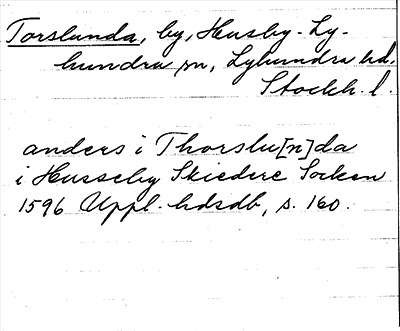 Torslunda, by, Husby-Ly-
hundra sn, Lyhundra hd,
Stockh. l.
anders i Thorslu[n]da
i Husseby Skiedere Socken
1596 Uppl. hdsdb, s. 160.